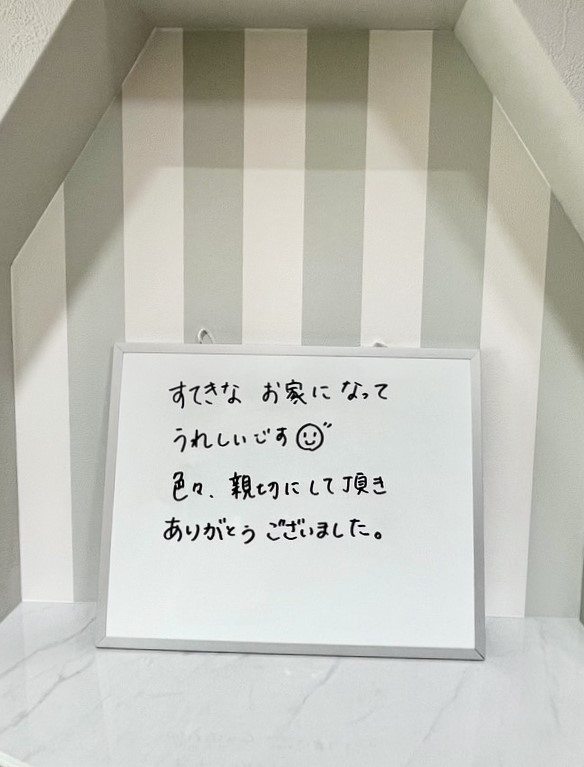 すてきな お家になって
うれしいです☺
色々、親切にして頂き
ありがとうございました。